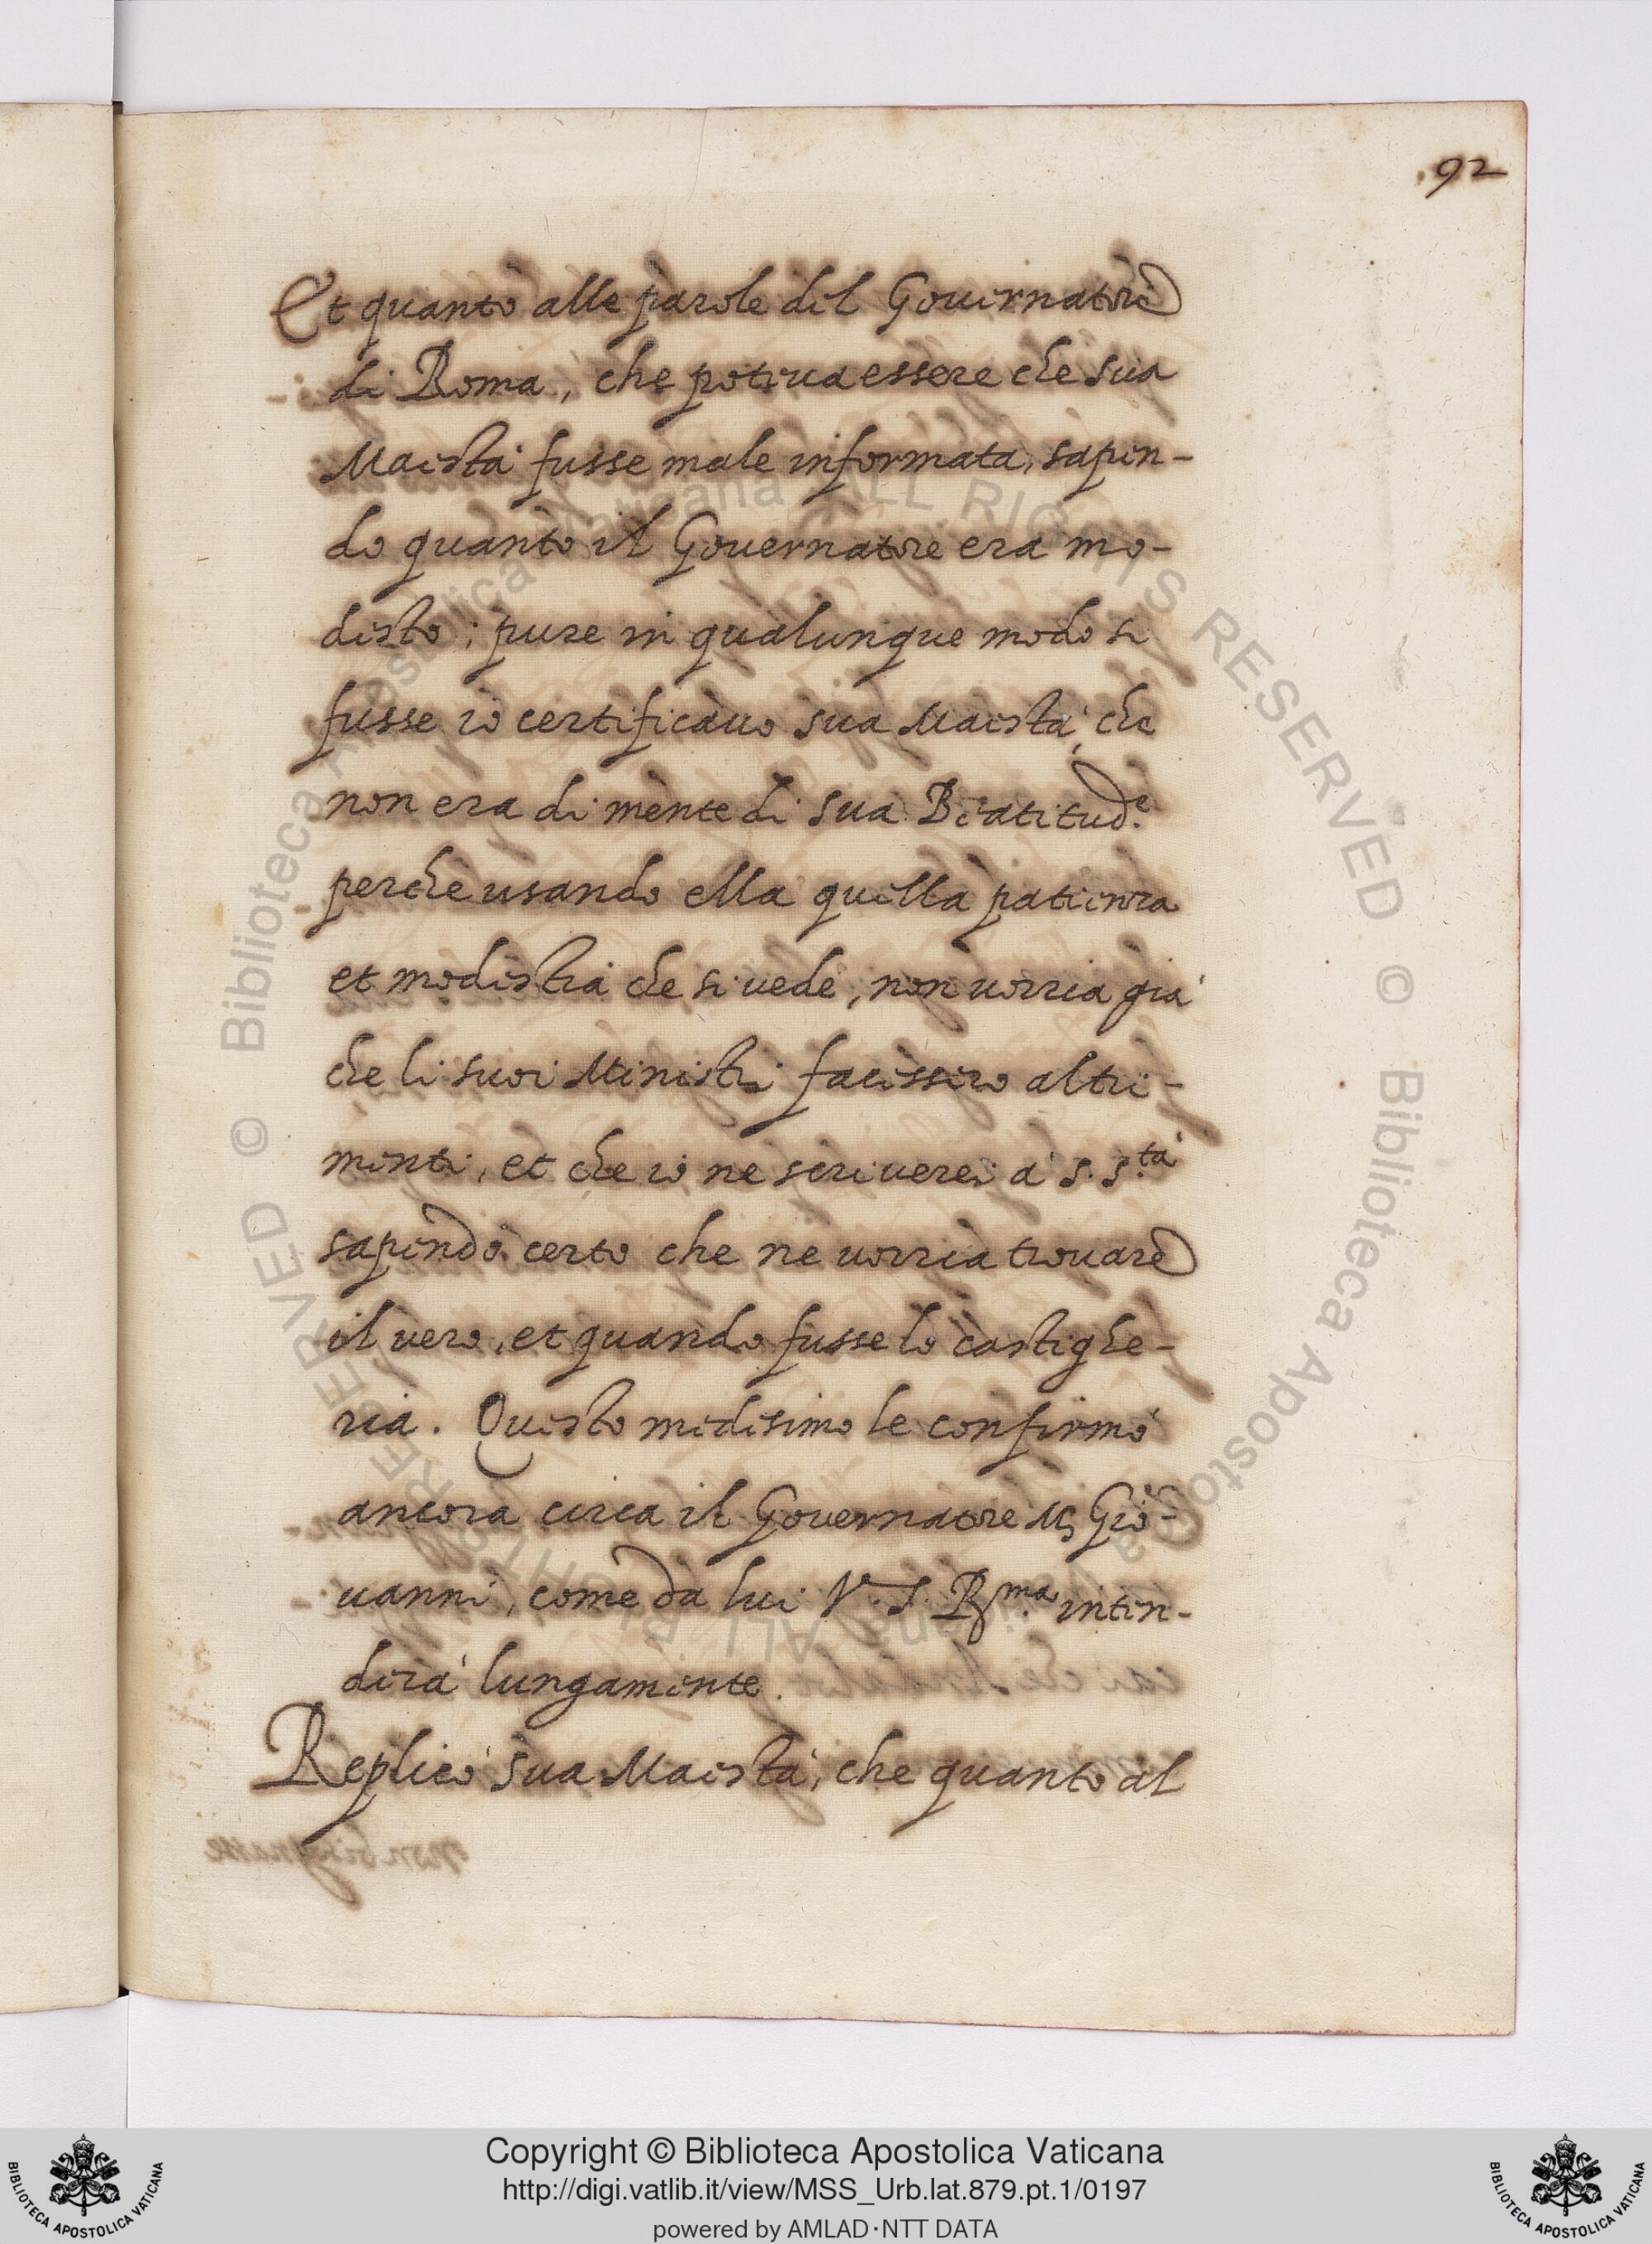 92
Et quanto alle parole del Gouernatore
di Roma, che poteua essere che sua
Maestà fusse male informata, sapen-
do quanto il Gouernatore era mo-
desto; pure in qualunque modo si
fusse io certificauo sua Maestà, che
non era di mente di sua Beatitud.e
perche usando ella quella patienza
et modestia che si uede, non uorria già
che li suoi Ministri facessero altri-
menti, et che io ne scriuerei à S. S.tà
sapendo certo che ne uorria trouare
il uero, et quando fusse lo castighe-
ria. Questo medesimo le confirmò
ancora circa il Gouernatore Gio-
uanni, come da lui V. S. R.ma inten-
derà lungamente.
Replicò sua Maestà, che quanto al
© Biblioteca Apostolica Vaticana ALL RIGHTS RESERVED © Biblioteca Apostolica Vaticana ALL RIGHTS RESERVED
Copyright © Biblioteca Apostolica Vaticana
http://digi.vatlib.it/view/MSS_Urb.lat.879.pt.1/0197
powered by AMLAD·NTT DATA
BIBLIOTECA APOSTOLICA VATICANA
BIBLIOTECA APOSTOLICA VATICANA